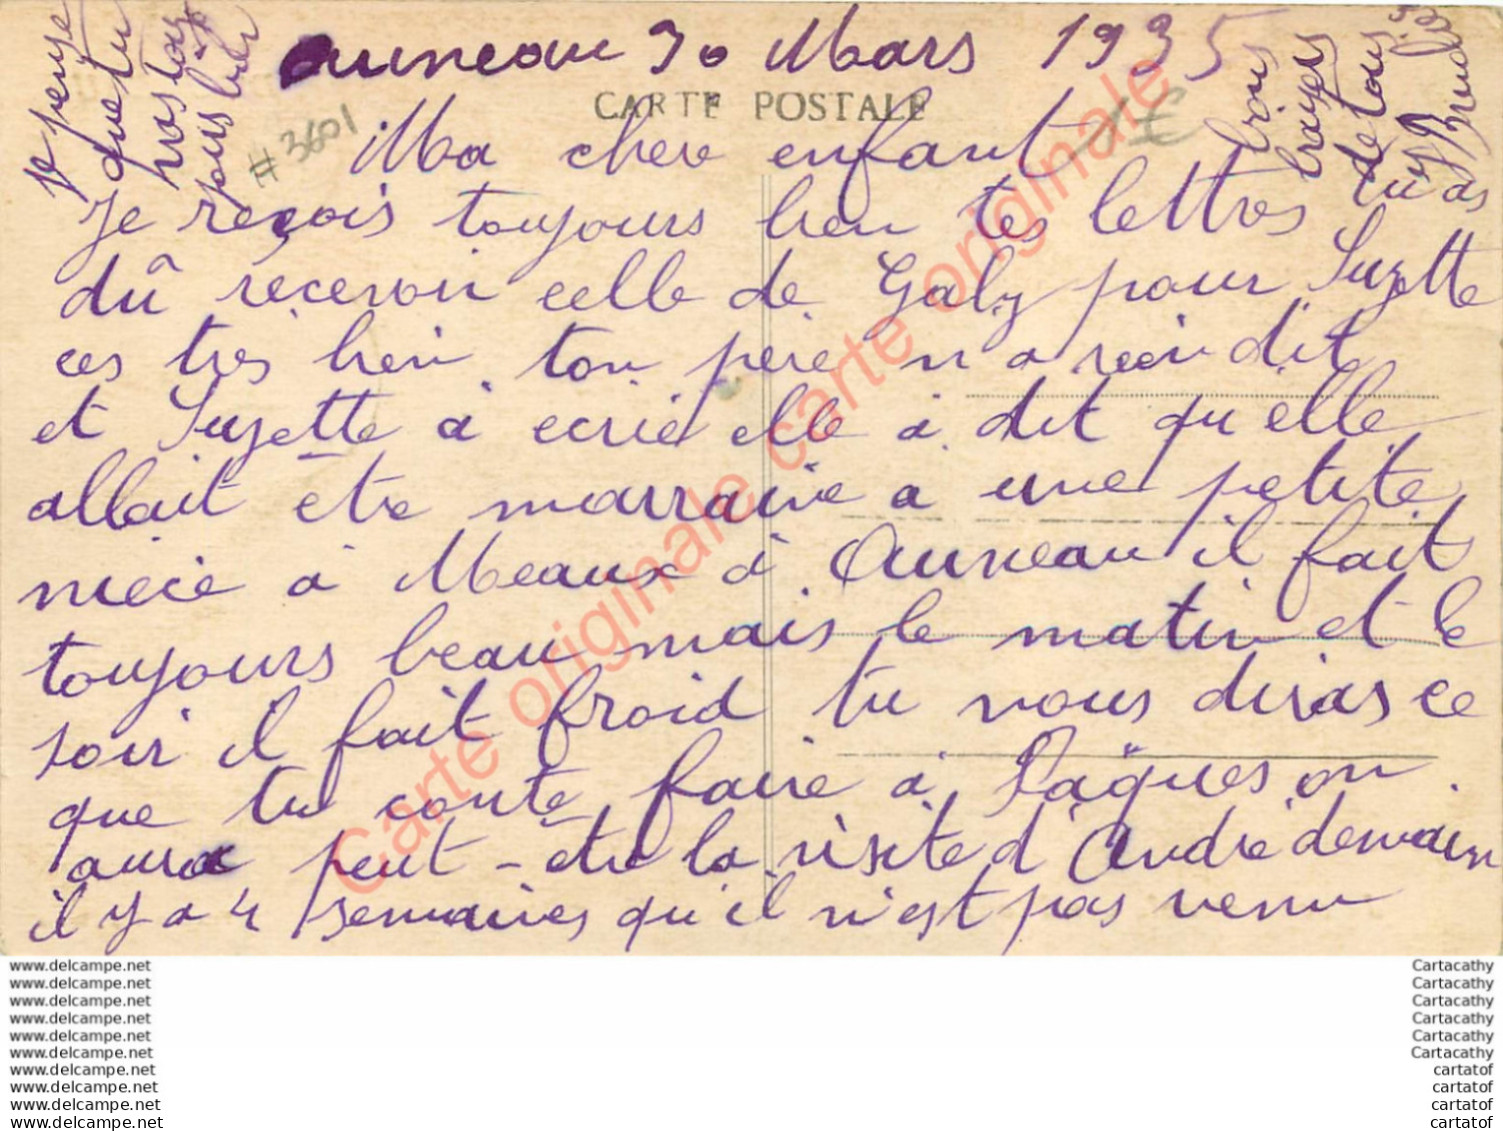 auneau 30 Mars 1935
CARTE POSTALE
#3601
1€
Ma chere enfant
Je reçois toujours bien tes lettres tu as
dû recevoir celle de Gaby pour Suzette
ces tres bien ton père n a rien dit
et Suzette à ecrie elle à dit qu elle
allait etre marraine a une petite
niece à Meaux à Auneau il fait
toujours beau mais le matin et le
soir il fait froid tu nous diras ce
que tu conte faire à Pâques on
aura peut-être la visite d'André demain
il y a 4 semaines qu'il n'est pas venu
Je pense
que tu
vas tous
bons
baisers
de tous
Carte originale carte originale carte originale
www.delcampe.net
www.delcampe.net
www.delcampe.net
www.delcampe.net
www.delcampe.net
www.delcampe.net
www.delcampe.net
www.delcampe.net
www.delcampe.net
www.delcampe.net
Cartacathy
Cartacathy
Cartacathy
Cartacathy
Cartacathy
Cartacathy
cartatof
cartatof
cartatof
cartatof